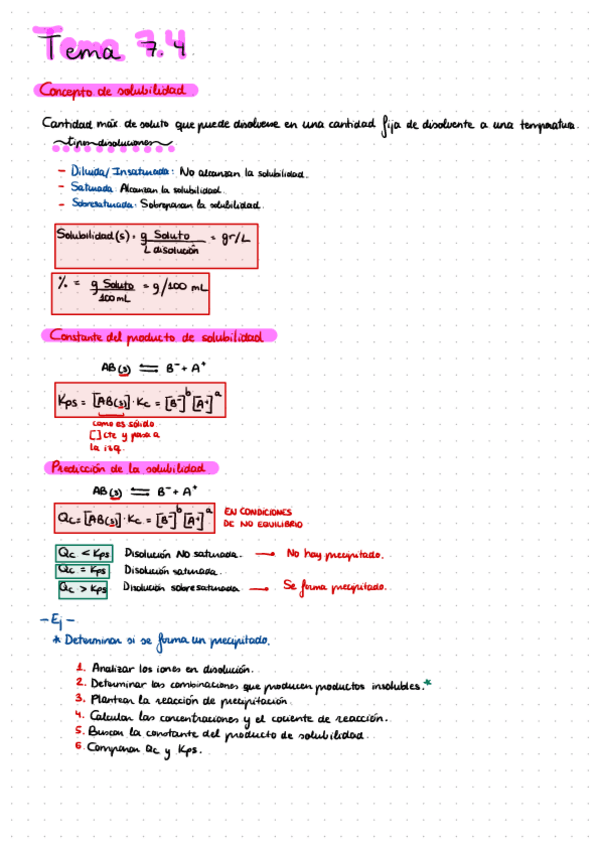 Tema 7.4
Concepto de solubilidad
Cantidad máx de soluto que puede disolverse en una cantidad fija de disolvente a una temperatura.
~tipos disoluciones~
- Diluida/Insaturada: No alcanzan la solubilidad.
- Saturada: Alcanzan la solubilidad.
- Sobresaturada: Sobrepasan la solubilidad.
Solubilidad(s) = g Soluto / L disolución = gr/L
% = g Soluto / 100 mL = g/100 mL
Constante del producto de solubilidad
AB(s) ⇌ B⁻ + A⁺
Kps = [AB(s)]·Kc = [B⁻]ᵇ[A⁺]ᵃ
como es sólido
[ ] cte y pasa a
la izq.
Predicción de la solubilidad
AB(s) ⇌ B⁻ + A⁺
Qc = [AB(s)]·Kc = [B⁻]ᵇ[A⁺]ᵃ EN CONDICIONES
DE NO EQUILIBRIO
Qc < Kps Disolución No saturada. → No hay precipitado.
Qc = Kps Disolución saturada.
Qc > Kps Disolución sobresaturada → Se forma precipitado.
- Ej -
* Determinar si se forma un precipitado.
1. Analizar los iones en disolución.
2. Determinar las combinaciones que producen productos insolubles.*
3. Plantear la reacción de precipitación.
4. Calcular las concentraciones y el cociente de reacción.
5. Buscar la constante del producto de solubilidad.
6. Comparar Qc y Kps.